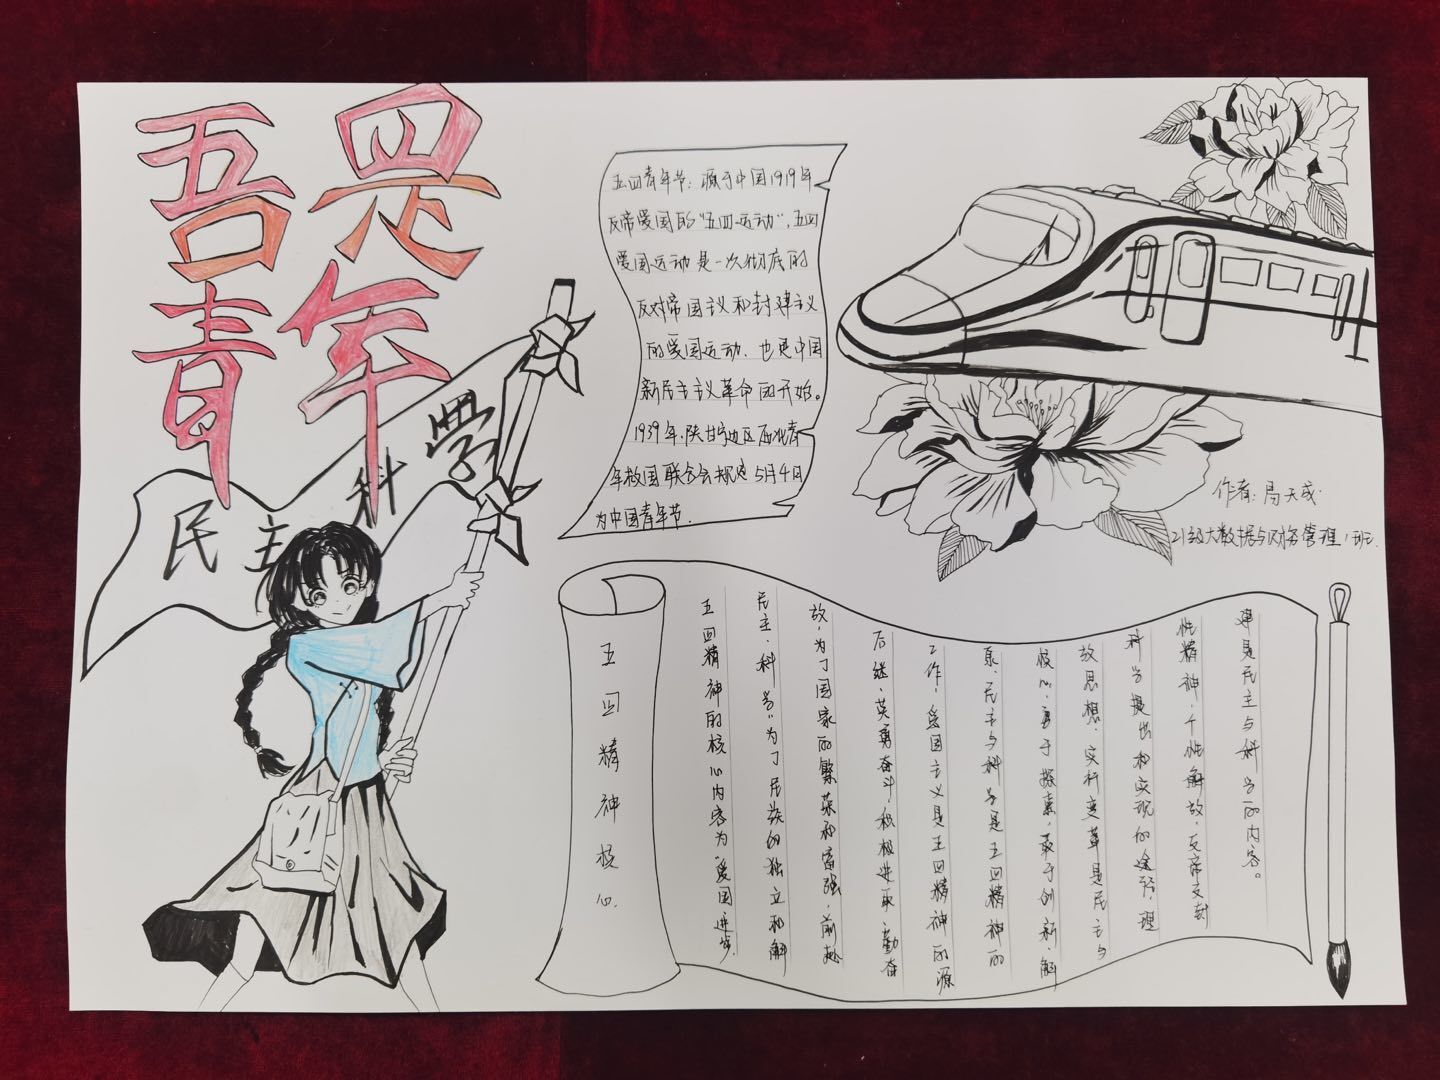 吾是
青年
民主 科學
五四青年节：源于中国1919年
反帝爱国的“五四运动”，五四
爱国运动是一次彻底的
反对帝国主义和封建主义
的爱国运动、也是中国
新民主主义革命的开始。
1939年，陕甘宁边区西北青
年救国联合会规定5月4日
为中国青年节．
作者：局天成
21级大数据与财务管理1班
五四精神核心．
五四精神的核心内容为“爱国进步．
民主．科学”为了民族的独立和解
放，为了国家的繁荣和富强，前赴
后继，英勇奋斗，积极进取，勤奋
工作，爱国主义是五四精神的源
泉、民主与科学是五四精神的
核心．勇于探索．敢于创新．解
放思想．实行变革是民主与
科学提出和实现的途径，理
性精神，个性解放，反帝反封
建是民主与科学的内容。